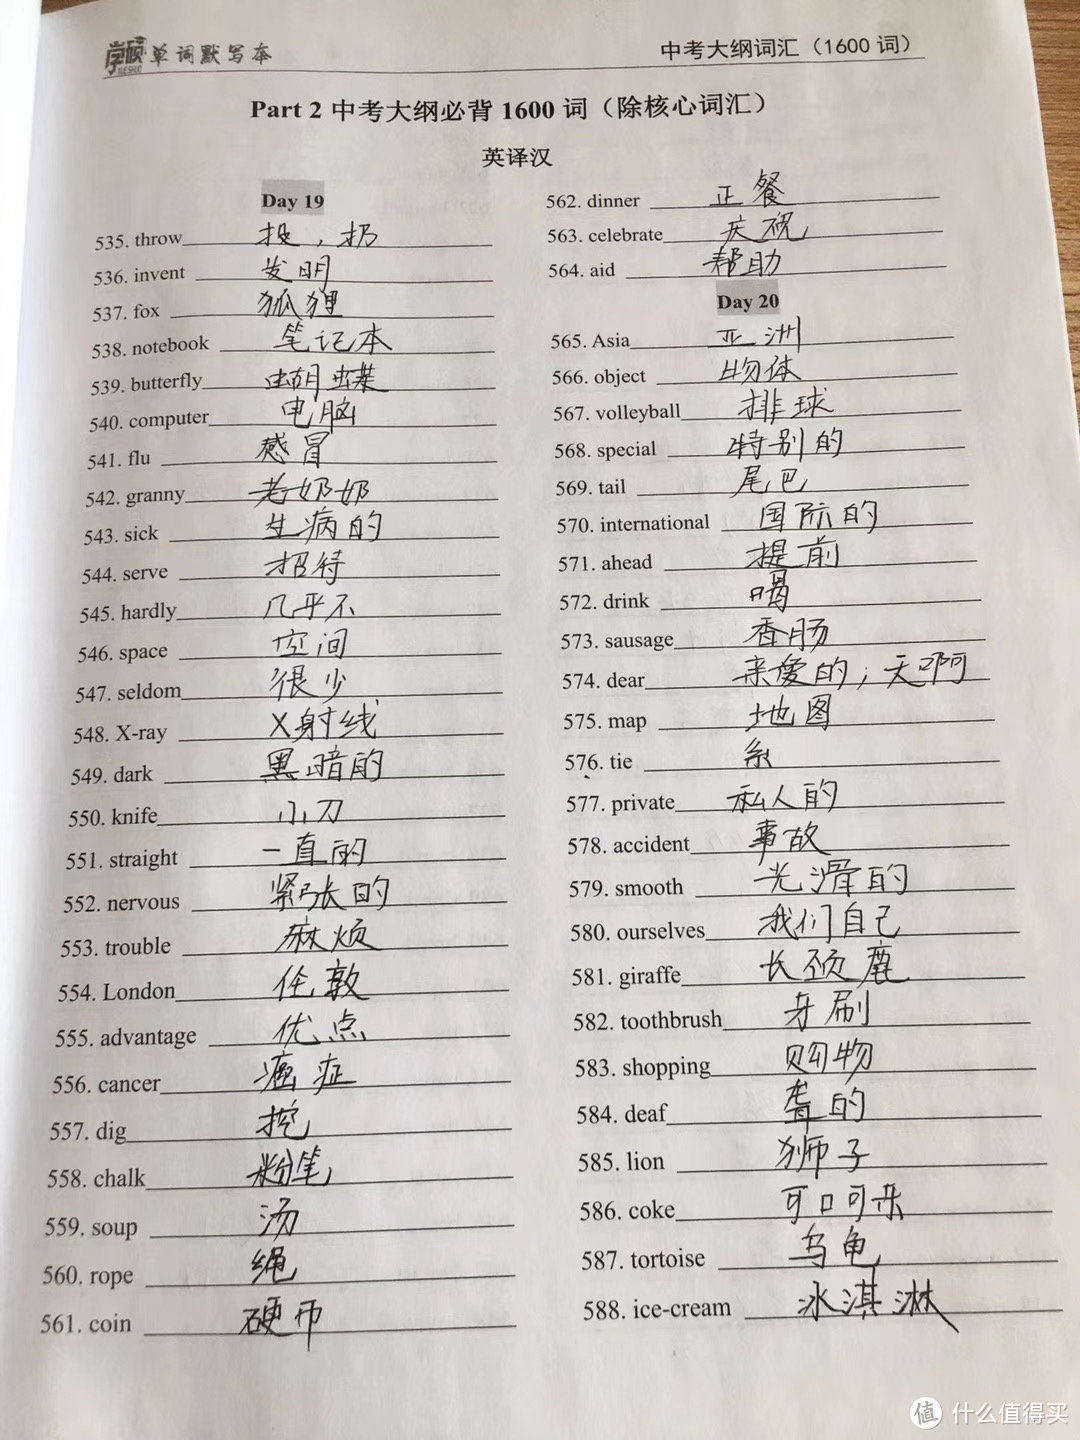 学硕 XUESHUO 单词默写本
中考大纲词汇（1600 词）
Part 2 中考大纲必背 1600 词（除核心词汇）
英译汉
Day 19
535. throw 投，扔
536. invent 发明
537. fox 狐狸
538. notebook 笔记本
539. butterfly 蝴蝶
540. computer 电脑
541. flu 感冒
542. granny 老奶奶
543. sick 生病的
544. serve 招待
545. hardly 几乎不
546. space 空间
547. seldom 很少
548. X-ray X射线
549. dark 黑暗的
550. knife 小刀
551. straight 一直的
552. nervous 紧张的
553. trouble 麻烦
554. London 伦敦
555. advantage 优点
556. cancer 癌症
557. dig 挖
558. chalk 粉笔
559. soup 汤
560. rope 绳
561. coin 硬币
562. dinner 正餐
563. celebrate 庆祝
564. aid 帮助
Day 20
565. Asia 亚洲
566. object 物体
567. volleyball 排球
568. special 特别的
569. tail 尾巴
570. international 国际的
571. ahead 提前
572. drink 喝
573. sausage 香肠
574. dear 亲爱的；天啊
575. map 地图
576. tie 系
577. private 私人的
578. accident 事故
579. smooth 光滑的
580. ourselves 我们自己
581. giraffe 长颈鹿
582. toothbrush 牙刷
583. shopping 购物
584. deaf 聋的
585. lion 狮子
586. coke 可口可乐
587. tortoise 乌龟
588. ice-cream 冰淇淋
值 什么值得买